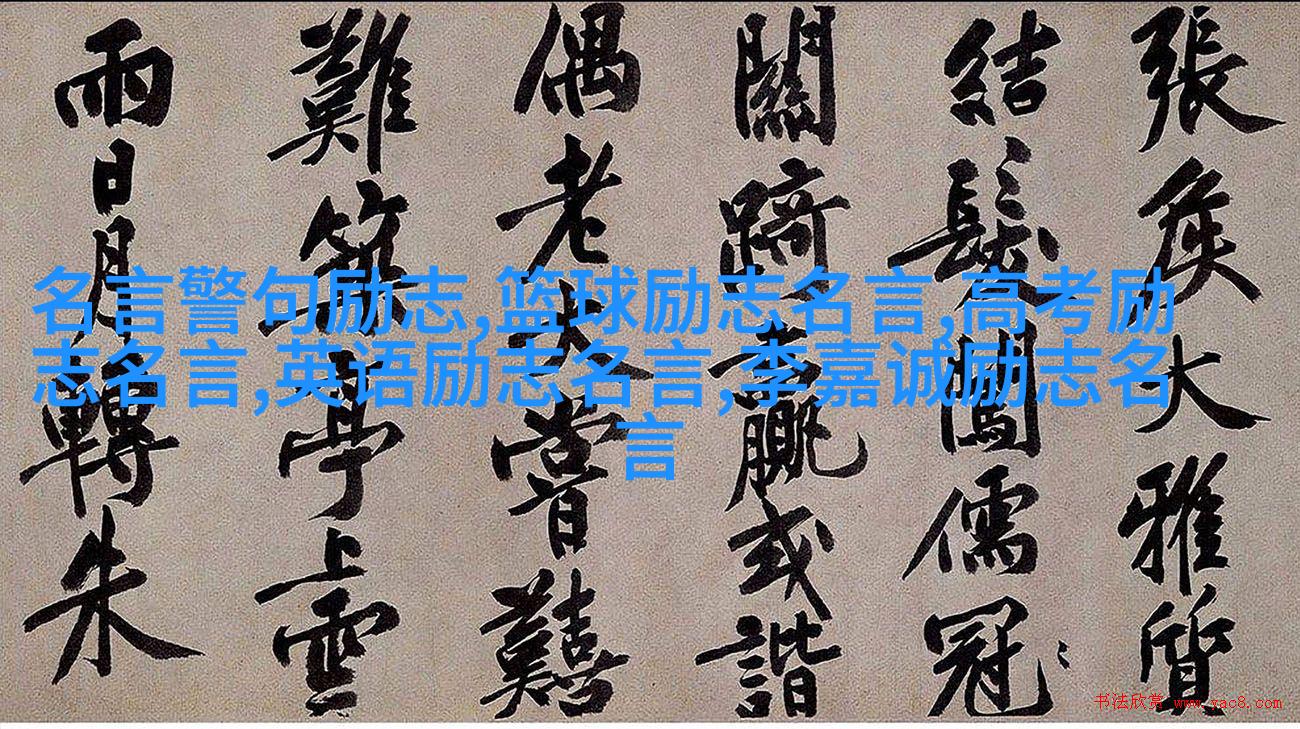 張侯大雅質
結髮闖儒冠
關踦贏或諧
偶老大嘗囏
難築亭上雲
雨日月轉朱
名言警句励志,篮球励志名言,高考励
志名言,英语励志名言,李嘉诚励志名
言
书法欣赏 www.yac8.com